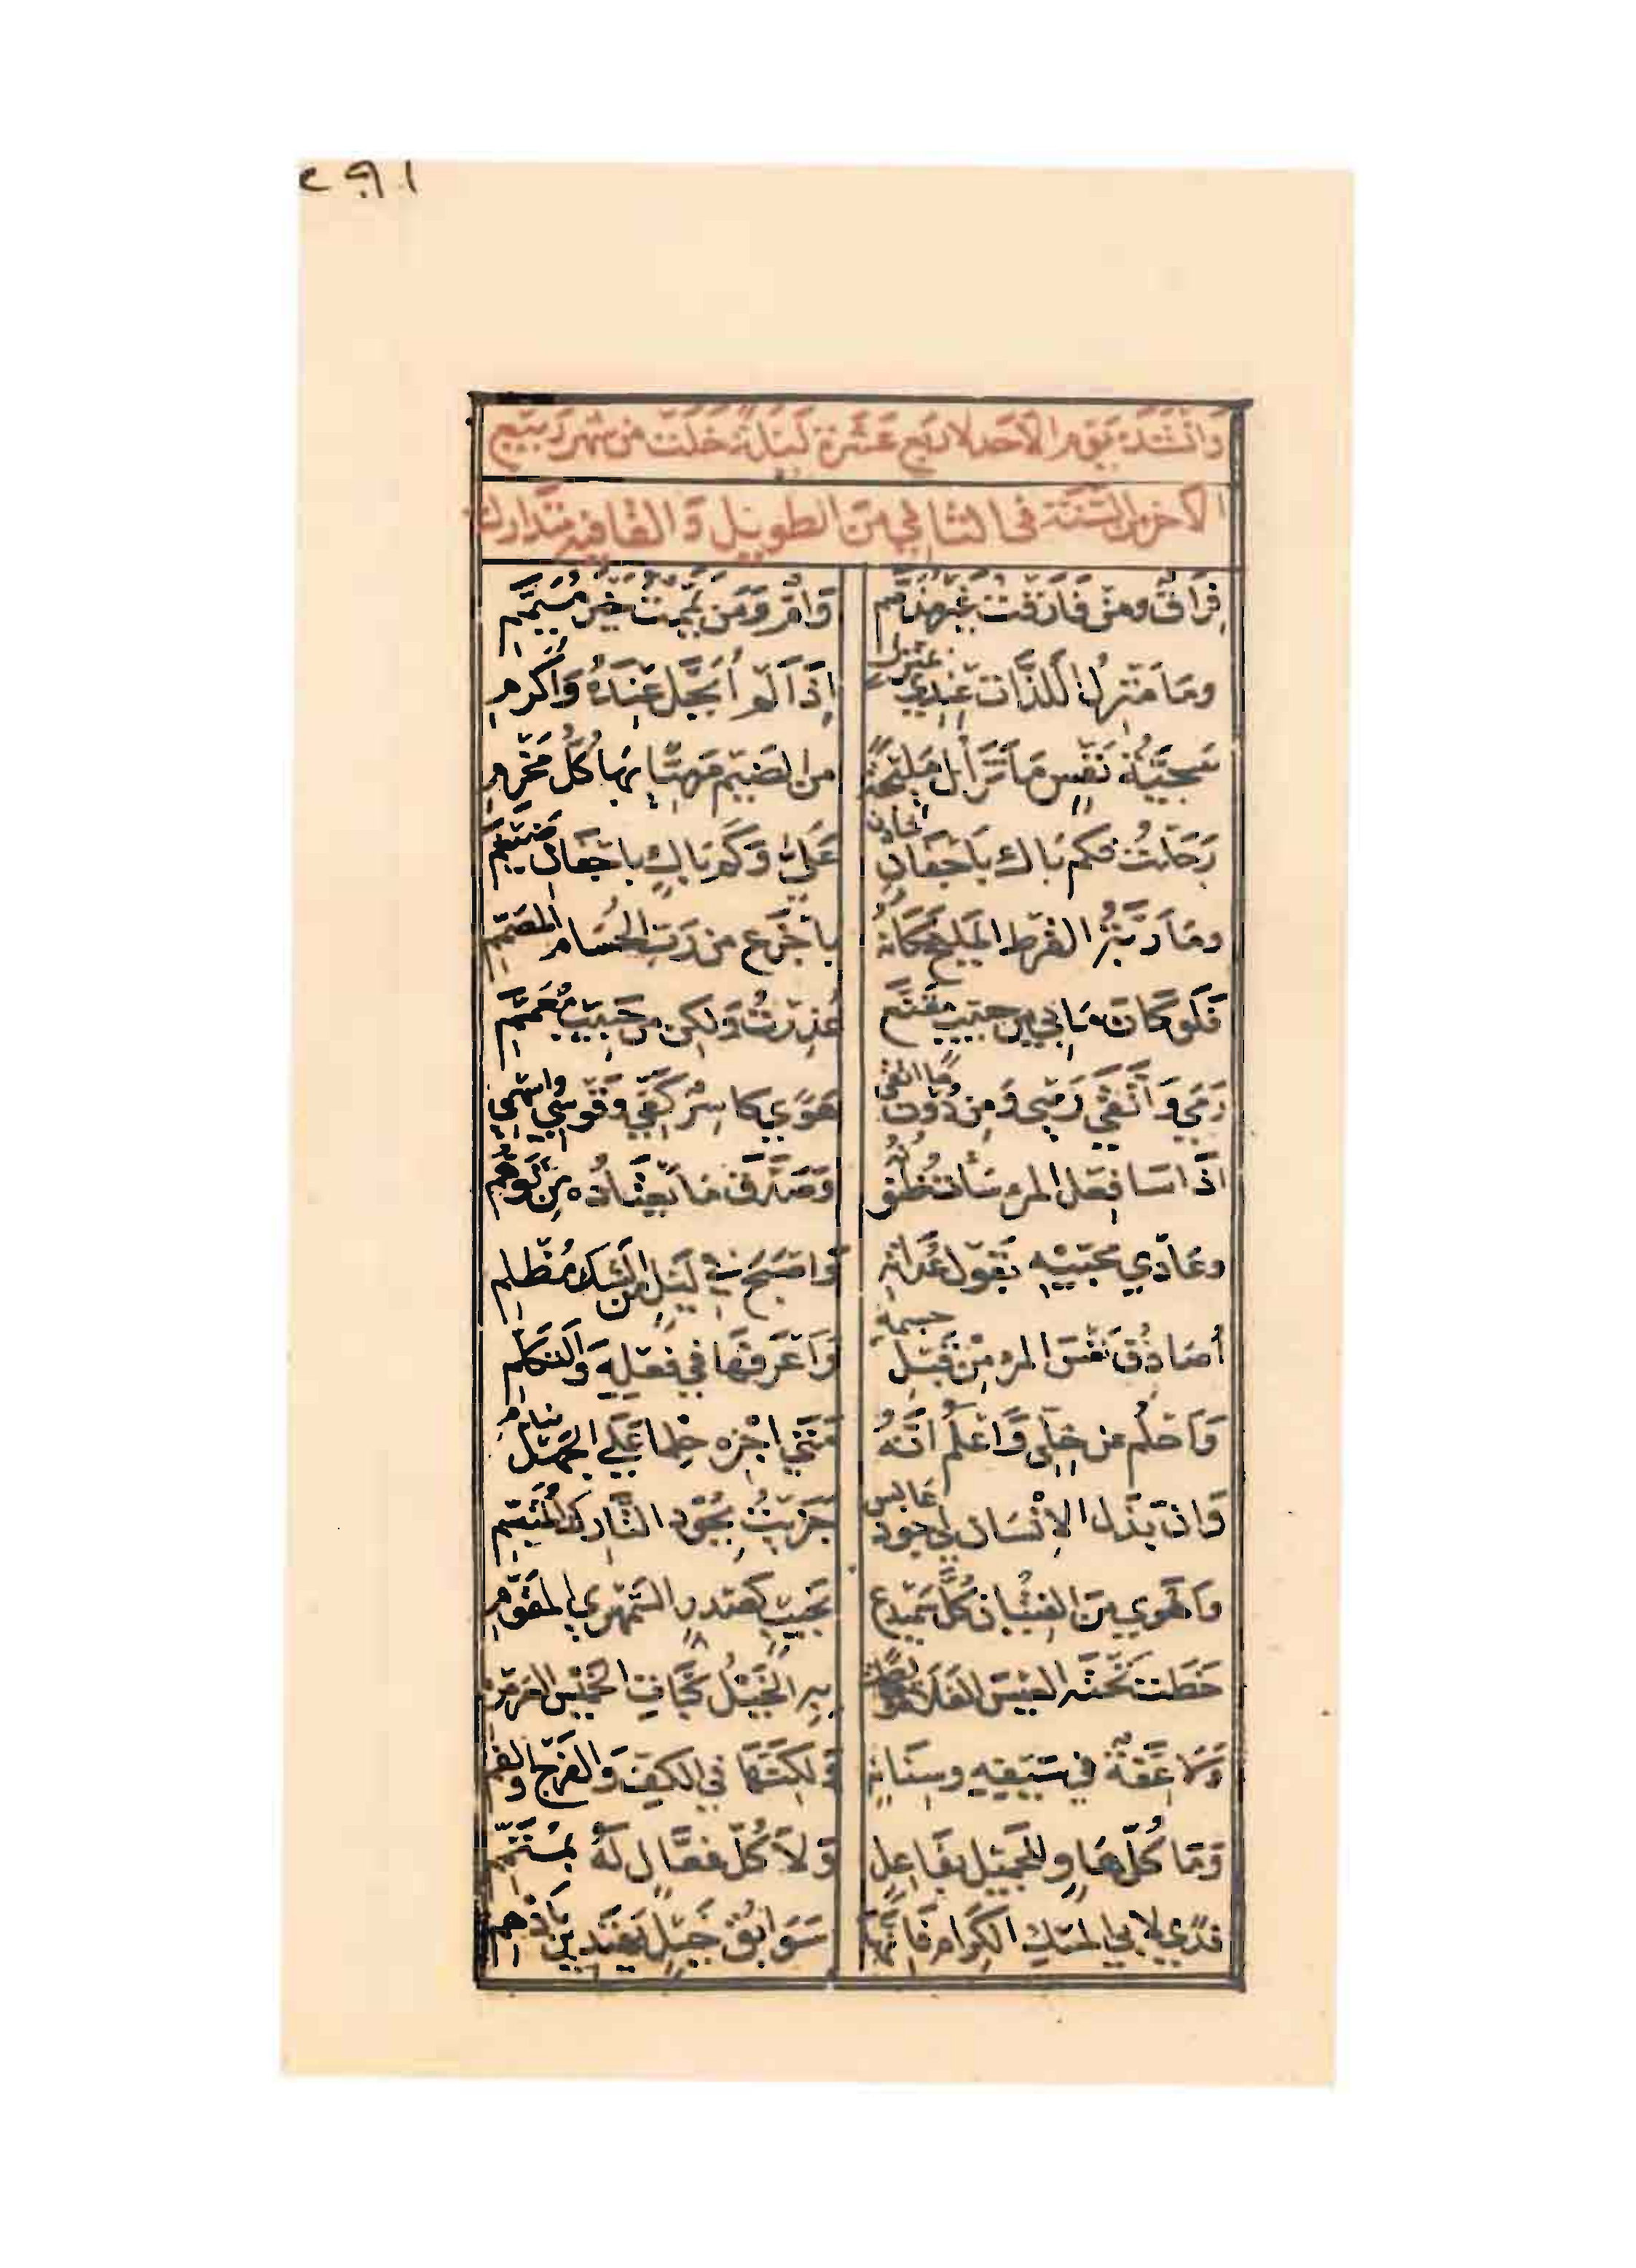 ٢٩١
وَانْشَدَهُ يَوْمَ الاَحَد لاربَع عَشَرة لَيْلَةً خَلَتْ من شهر رَبيْع
الآخر من السَّنَة في الثاني من الطويل وَ القافيه مُتَدَارك
فِرَاقٌ ومنْ فَارَقْتُ غَيْرُ مُذَمَّمِ وَاَمٌّ وَمَن يَمَّمْتُ خَيْرُ مُيَمَّمِ
ومَا مَنْزِلُ اللذَّاتِ عِنْدِي بمَنْزِلٍ اِذَا لَم اُبَجَّلْ عِنْدَهُ وَاُكْرَمِ
سَجِيَّةُ نَفْسٍ مَا تَزَالُ مُلِيْحَةً من الضَيْمِ مَرْمِيًّا بِهَا كُلُّ مَخْرَمِ
رَحَلْتُ فكم بَاكٍ بِاَجْفَانِ شَادِنٍ عَلَيَّ وَكَم بَاكٍ باَجْفَانِ ضَيْغَمِ
ومَا رَبَّةُ القُرْطِ المَلِيحِ مَكَانُهُ بِاَجْزَعَ من رَبِّ الحُسَامِ المُصَمِّمِ
فَلَوْ كَانَ مَا بِي مِن حَبِيبٍ مُقَنَّعٍ عُذِرْتُ وَلكِن من حَبِيبٍ مُعَمَّمِ
رَمَى وَاتَّقَى رَمْيِي وَمِن دُوْنِ مَا اتَّقَى هَوًى كاسِرٌ كَفِّي وَقَوْسِي وَاسْهُمِي
اذَا سَا فِعْلُ المرءِ سَأتْ ظُنُونُهُ وَصَدَّقَ مَا يَعْتَادُه مِنْ تَوَهُّمِ
وعَادَى مُحِبِّيْهِ بقَوْلِ عُدَاتِهِ وَاصْبَحَ في لَيْلٍ من الشَكِّ مُظْلِمِ
أُصَادِقُ نَفْسَ المرءِ مِنْ قَبْلِ جِسْمِهِ وَاَعْرِفُهَا في فِعْلِهِ وَالتَّكَلُّمِ
وَاَحْلُمُ عن خِلِّي وَاَعْلَمُ اَنَّهُ مَتَى اجْزِه حِلمًا عَلَى الجَهْلِ يَنْدَمِ
وَان بَذَلَ الاِنْسَانُ لي جُودَ عَابِسٍ جَزَيْتُ بِجُوْدِ التَّارِكِ المُتَبَسِّمِ
وَاَهْوَى مِنَ الفِتْيَانِ كُلَّ سَمَيْدَعٍ نَجِيبٍ كَصَدْرِ السَّمْهَرِيِّ المُقَوَّمِ
خَطَتْ تَحْتَه العِيسُ الفَلَاةَ وخَالَطَتْ بِهِ الخَيْلُ كَبَّاتِ الخَمِيْسِ العَرَمْرَمِ
وَلَا عِفَّةٌ في سَيْفِهِ وسِنَانِهِ وَلكِنَّهَا في الكَفِّ وَالفَرْجِ وَالفَمِ
وَمَا كُلُّ هَاوٍ للجَمِيْلِ بفَاعِلٍ وَلَا كُلُّ فَعَّالٍ لَهُ بمُتَمِّمِ
فِدًى لابي المِسْكِ الكِرَامُ فَاِنَّهَا سَوَابِقُ خَيْلٍ يَهْتَدِيْنَ بِاَدْهَمِ